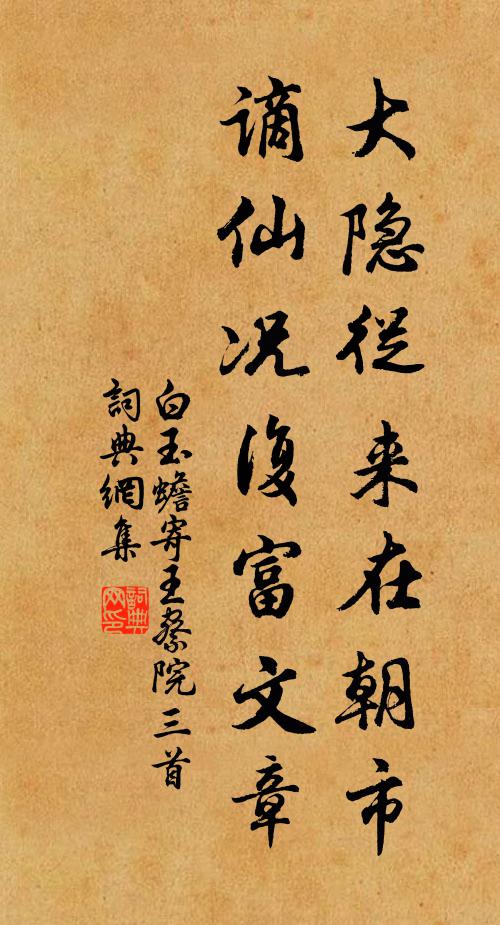 大隐從来在朝市
谪仙况復富文章
白玉蟾寄王察院三首
詞典網集
詞典网印